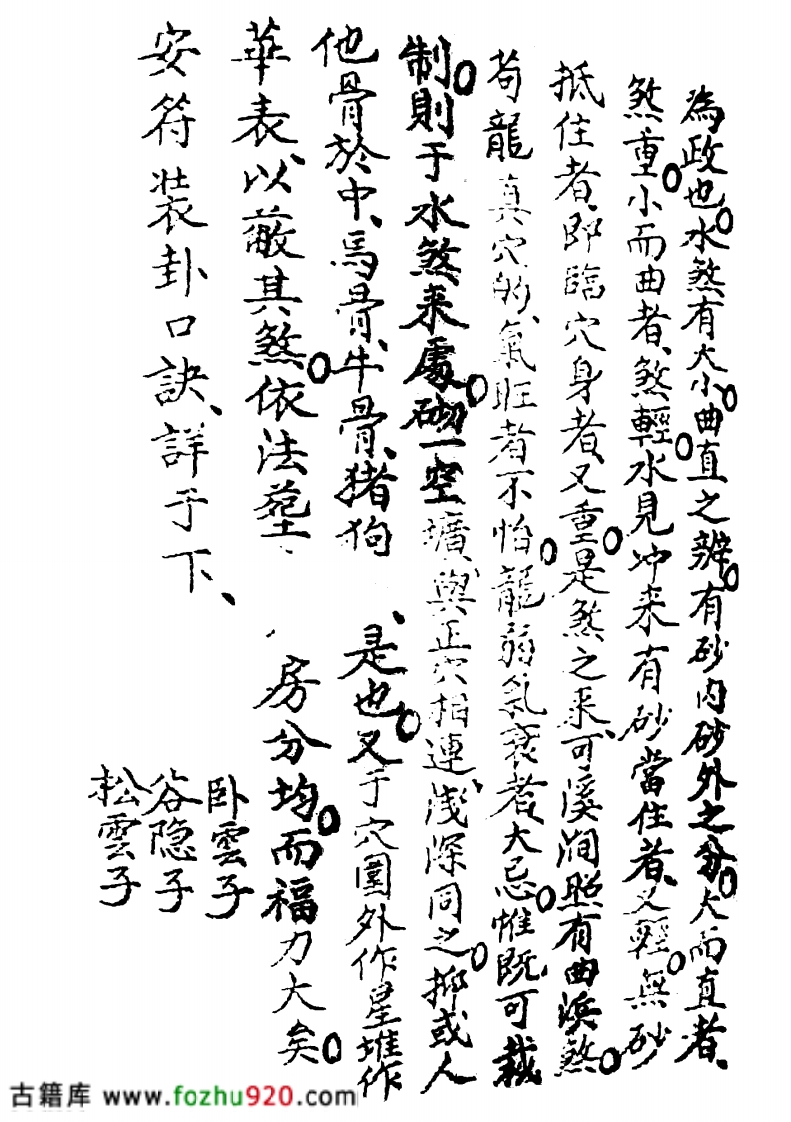 為政也。水煞有大小。曲直之辨。有砂内砂外之分。大而直者、
煞重。小而曲者、煞輕。水見冲来有砂當住者、又輕。無砂
抵住者、即臨穴身者、又重。是煞之来、可溪澗照有曲浜煞。
苟龍真穴的、氣旺者不怕。龍弱氣衰者、大忌。惟既可裁
制。則于水煞来處。砌一空壙、與正穴相連、浅深同之。抑或人
他骨於中、馬骨、牛骨、猪狗、是也。又于穴圍外作星堆作
華表、以蔽其煞。依法塟、房分均。而福力大矣。
安符装卦口訣、詳于下、
卧雲子
谷隐子
松雲子
古籍库 www.fozhu920.com